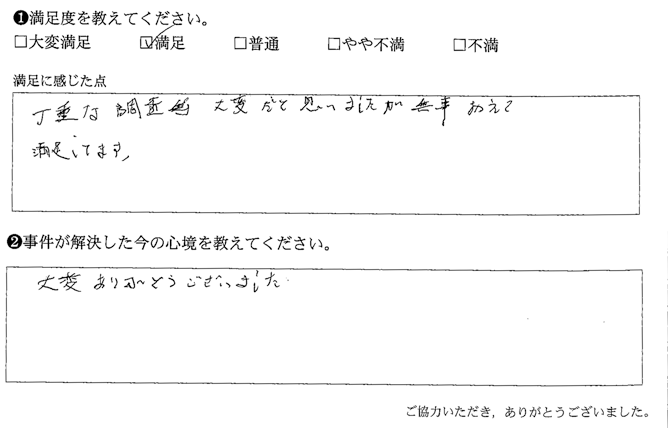 ❶満足度を教えてください。
□大変満足 ☑満足 □普通 □やや不満 □不満
満足に感じた点
丁重な 調査 大変だと思いましたが 無事 おえて
満足してます。
❷事件が解決した今の心境を教えてください。
大変ありがとうございました
ご協力いただき，ありがとうございました。